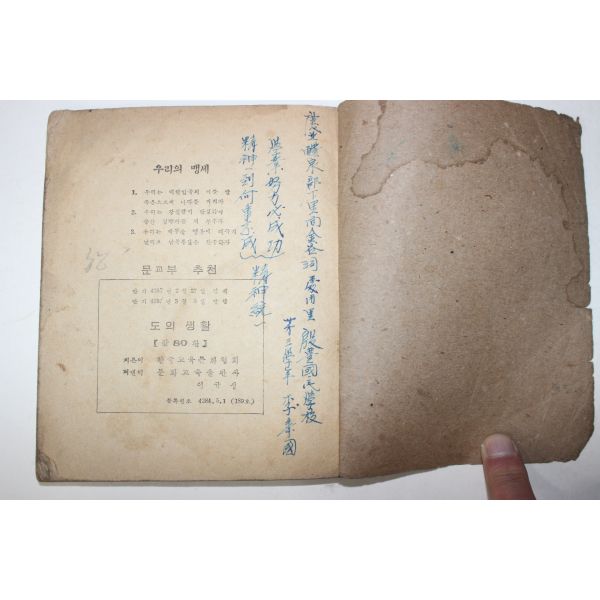 우리의 맹세
1. 우리는 대한민국의 아들 딸
죽음으로써 나라를 지키자
2. 우리는 강철같이 단결하여
공산 침략자를 쳐 부수자
3. 우리는 백두산 영봉에 태극기
날리고 남북통일을 완수하자
문교부 추천
도의 생활
【값 80환】
지은이 한국교육문화협회
펴낸이 문화교육출판사
등록번호 4284.5.1 (189호)
慶北 醴泉郡 下里面 金谷洞
殷豊國民學校
第三學年 李章國
學業努力必成功
精神一到何事不成
精神統一